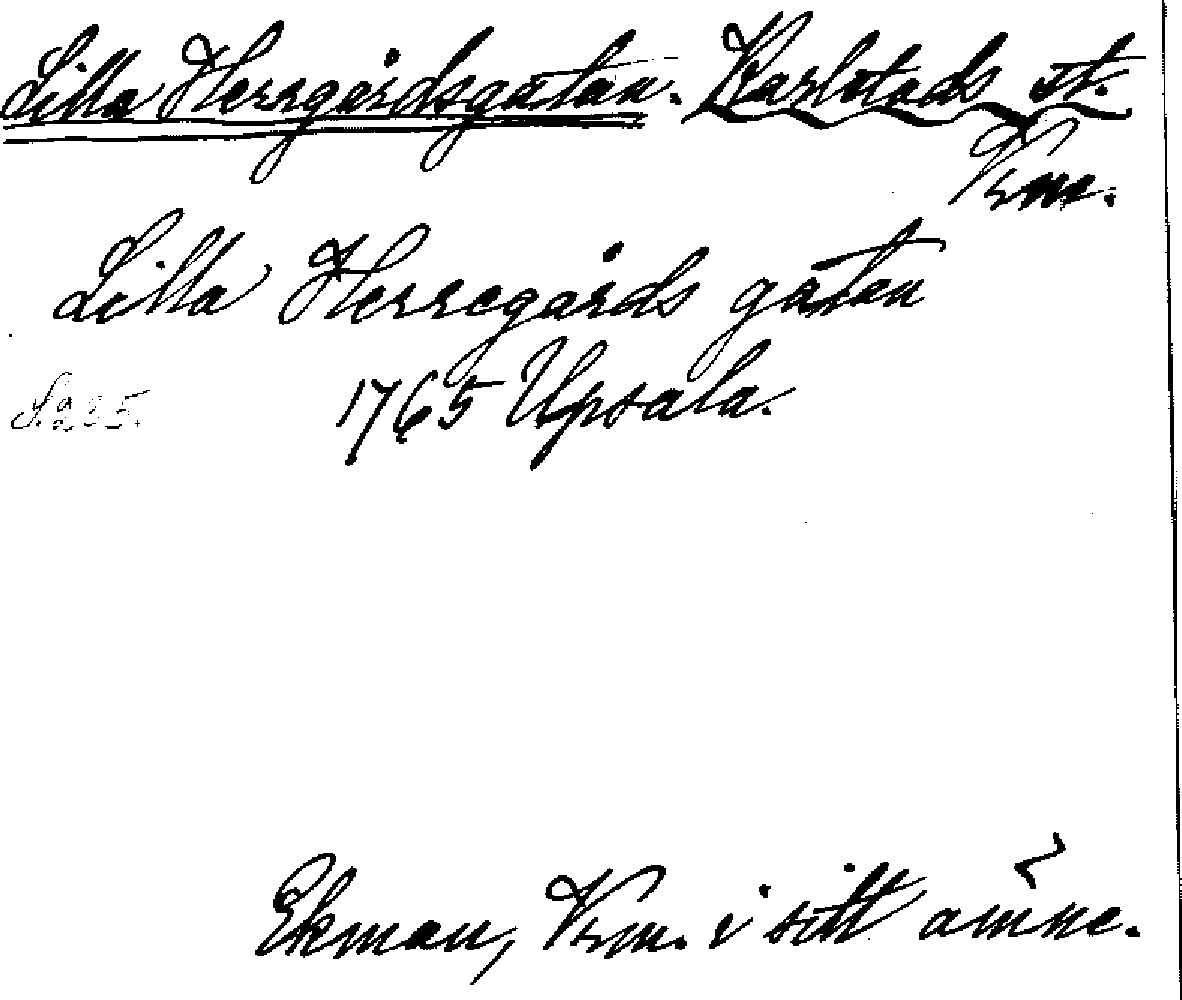 Lilla Herrgårdsgatan. Karlstads st.
Vrm.
Lilla Herregårds gatan
S. 225. 1765 Upsala.
Ekman, Vrm. i sitt ämne.